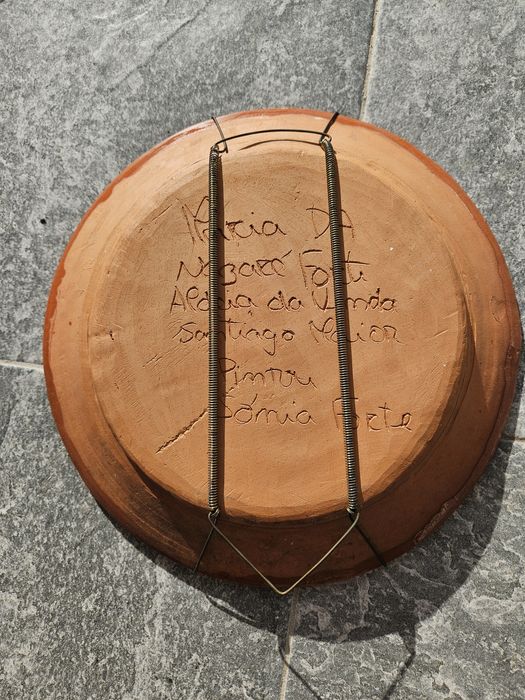 Maria DA
Nazaré Forti
Aldeia da Venda
Santiago Maior
Pintou
Sónia Forte